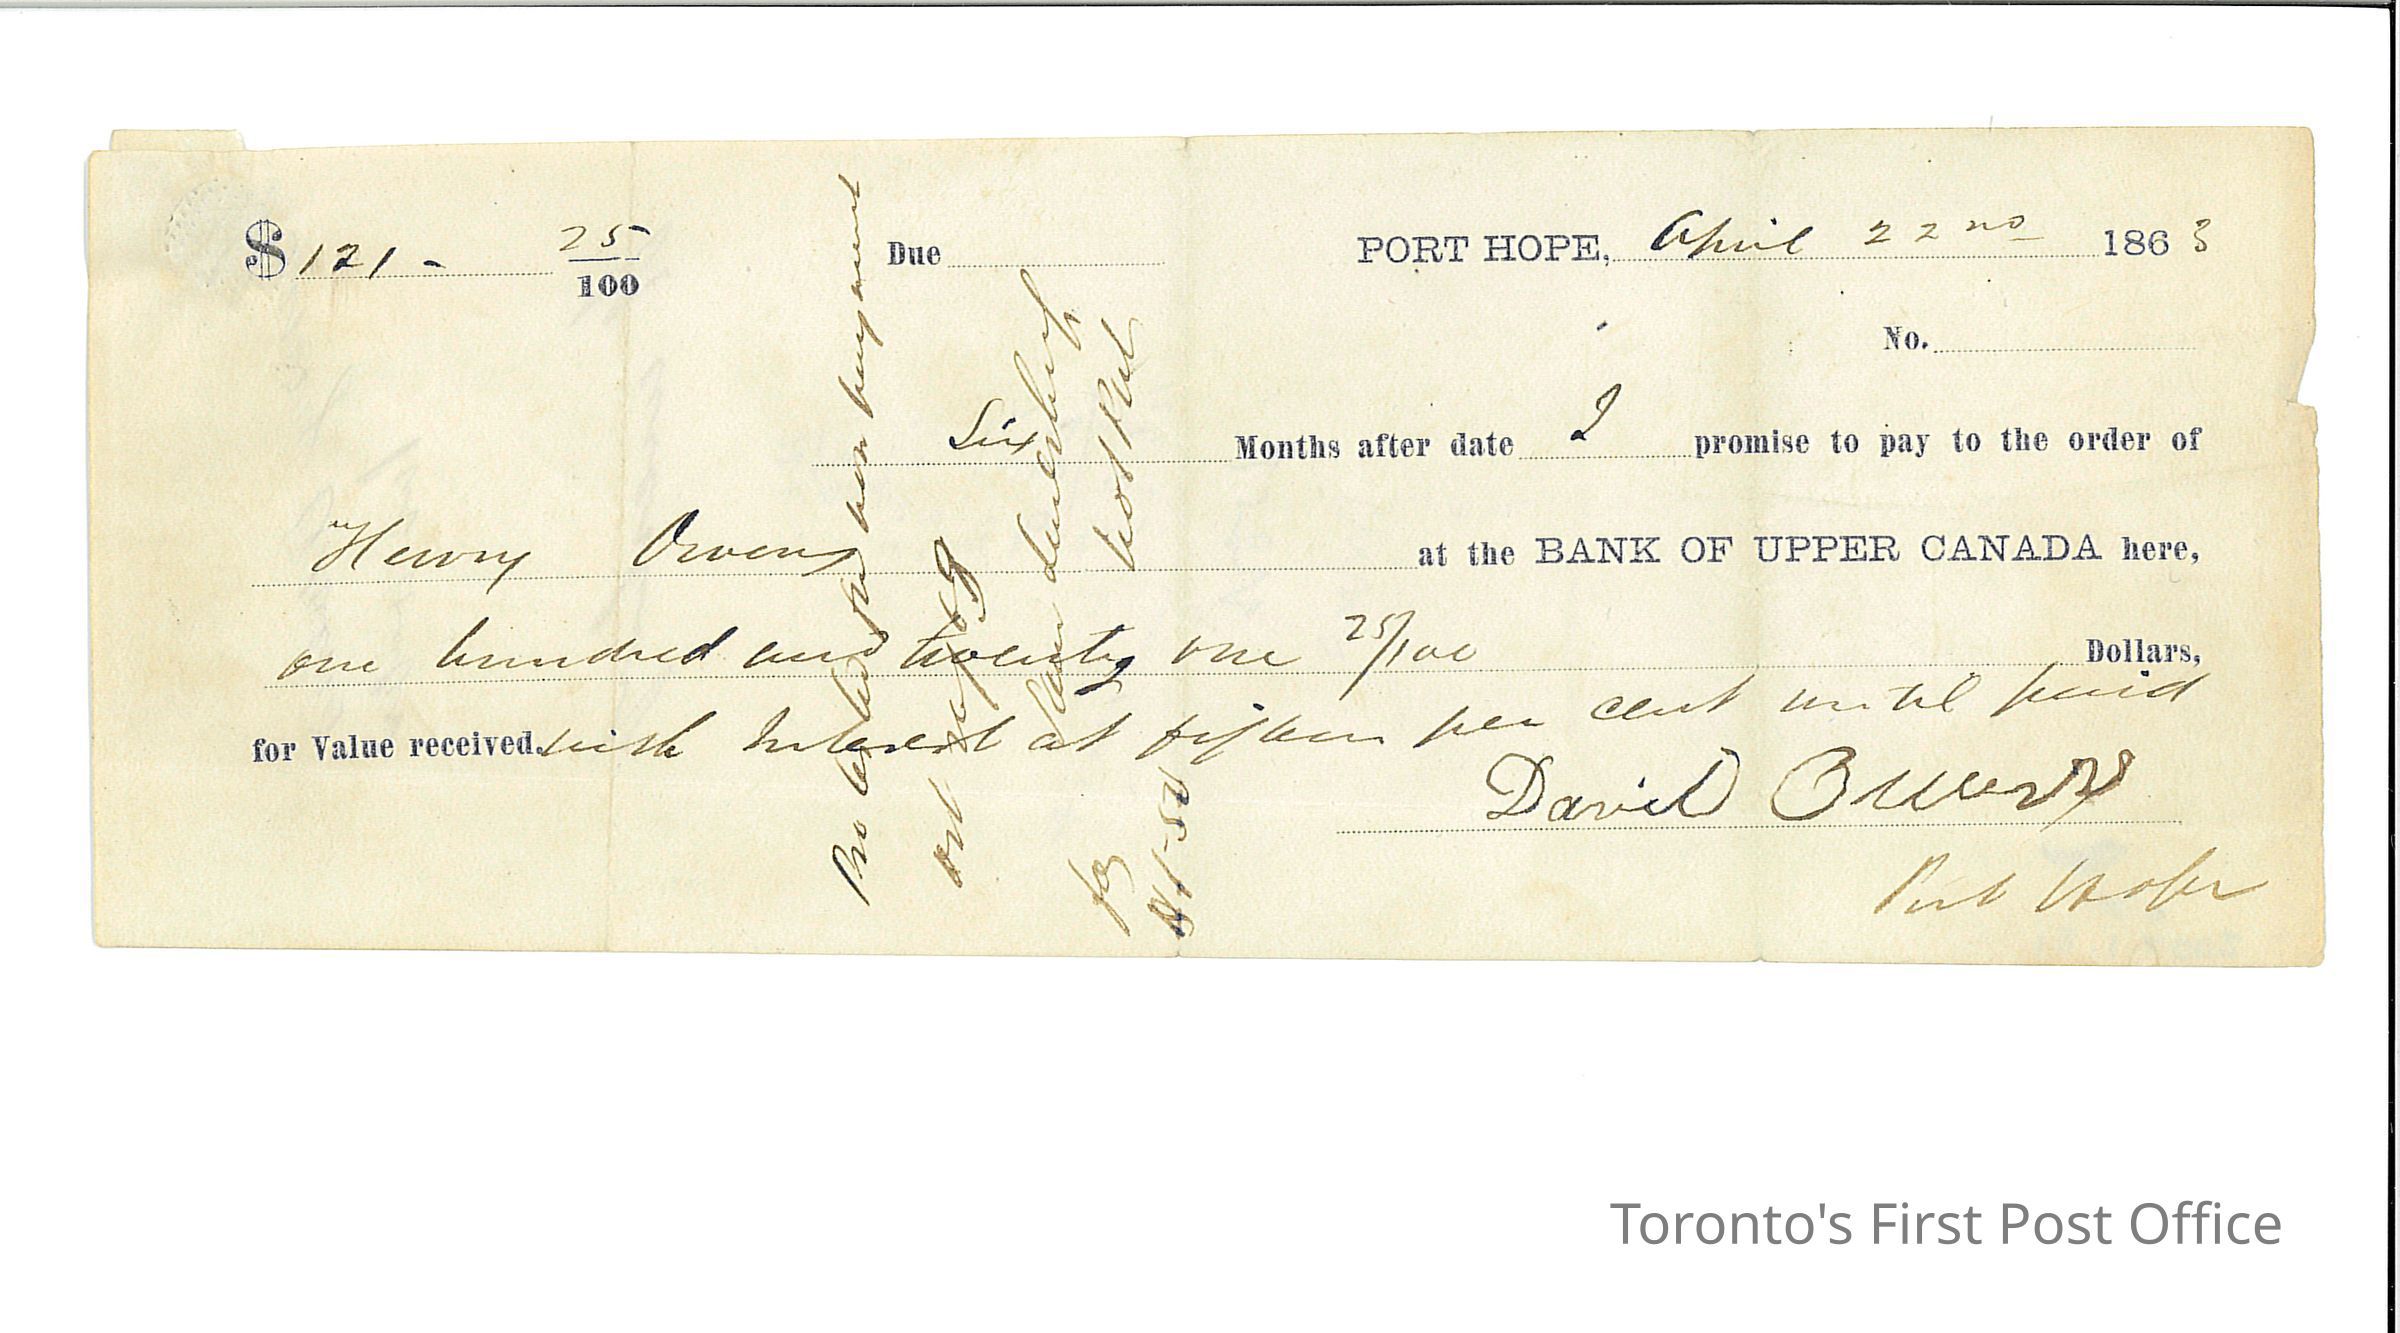 $ 121 - 25/100 Due PORT HOPE, April 22nd 1863
No.
Six Months after date I promise to pay to the order of
Henry Owens at the BANK OF UPPER CANADA here,
one hundred and twenty one 25/100 Dollars,
for Value received. with Interest at fifteen per cent until paid
David Owens
Port Hope
Protested for non payment
Toronto's First Post Office